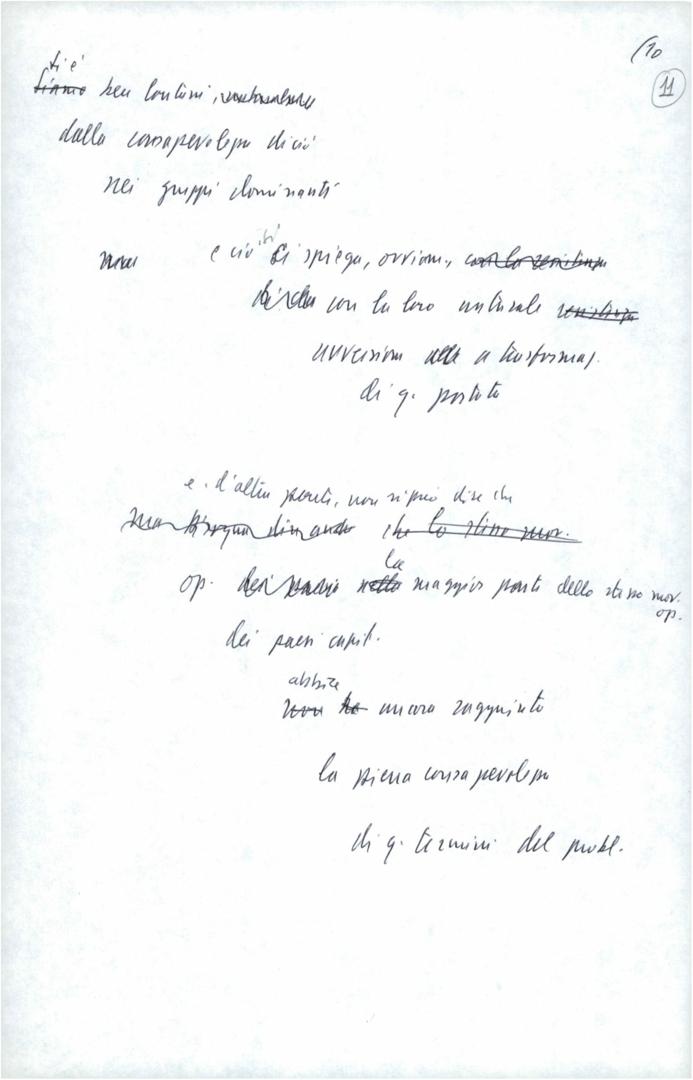 10
11
si è
siamo ben lontani,
dalla consapevolezza di ciò
nei gruppi dominanti
ma e ciò si si spiega, ovviam., con la resistenza
con la loro naturale resistenza
avversione alla a trasformaz.
di q. portata
e, d'altra parte, non si può dire che
ma bisogna dire anche che lo stesso mov.
la
op. dei paesi nella maggior parte dello stesso mov.
op.
dei paesi capit.
abbia
non ha ancora raggiunto
la piena consapevolezza
di q. termini del probl.